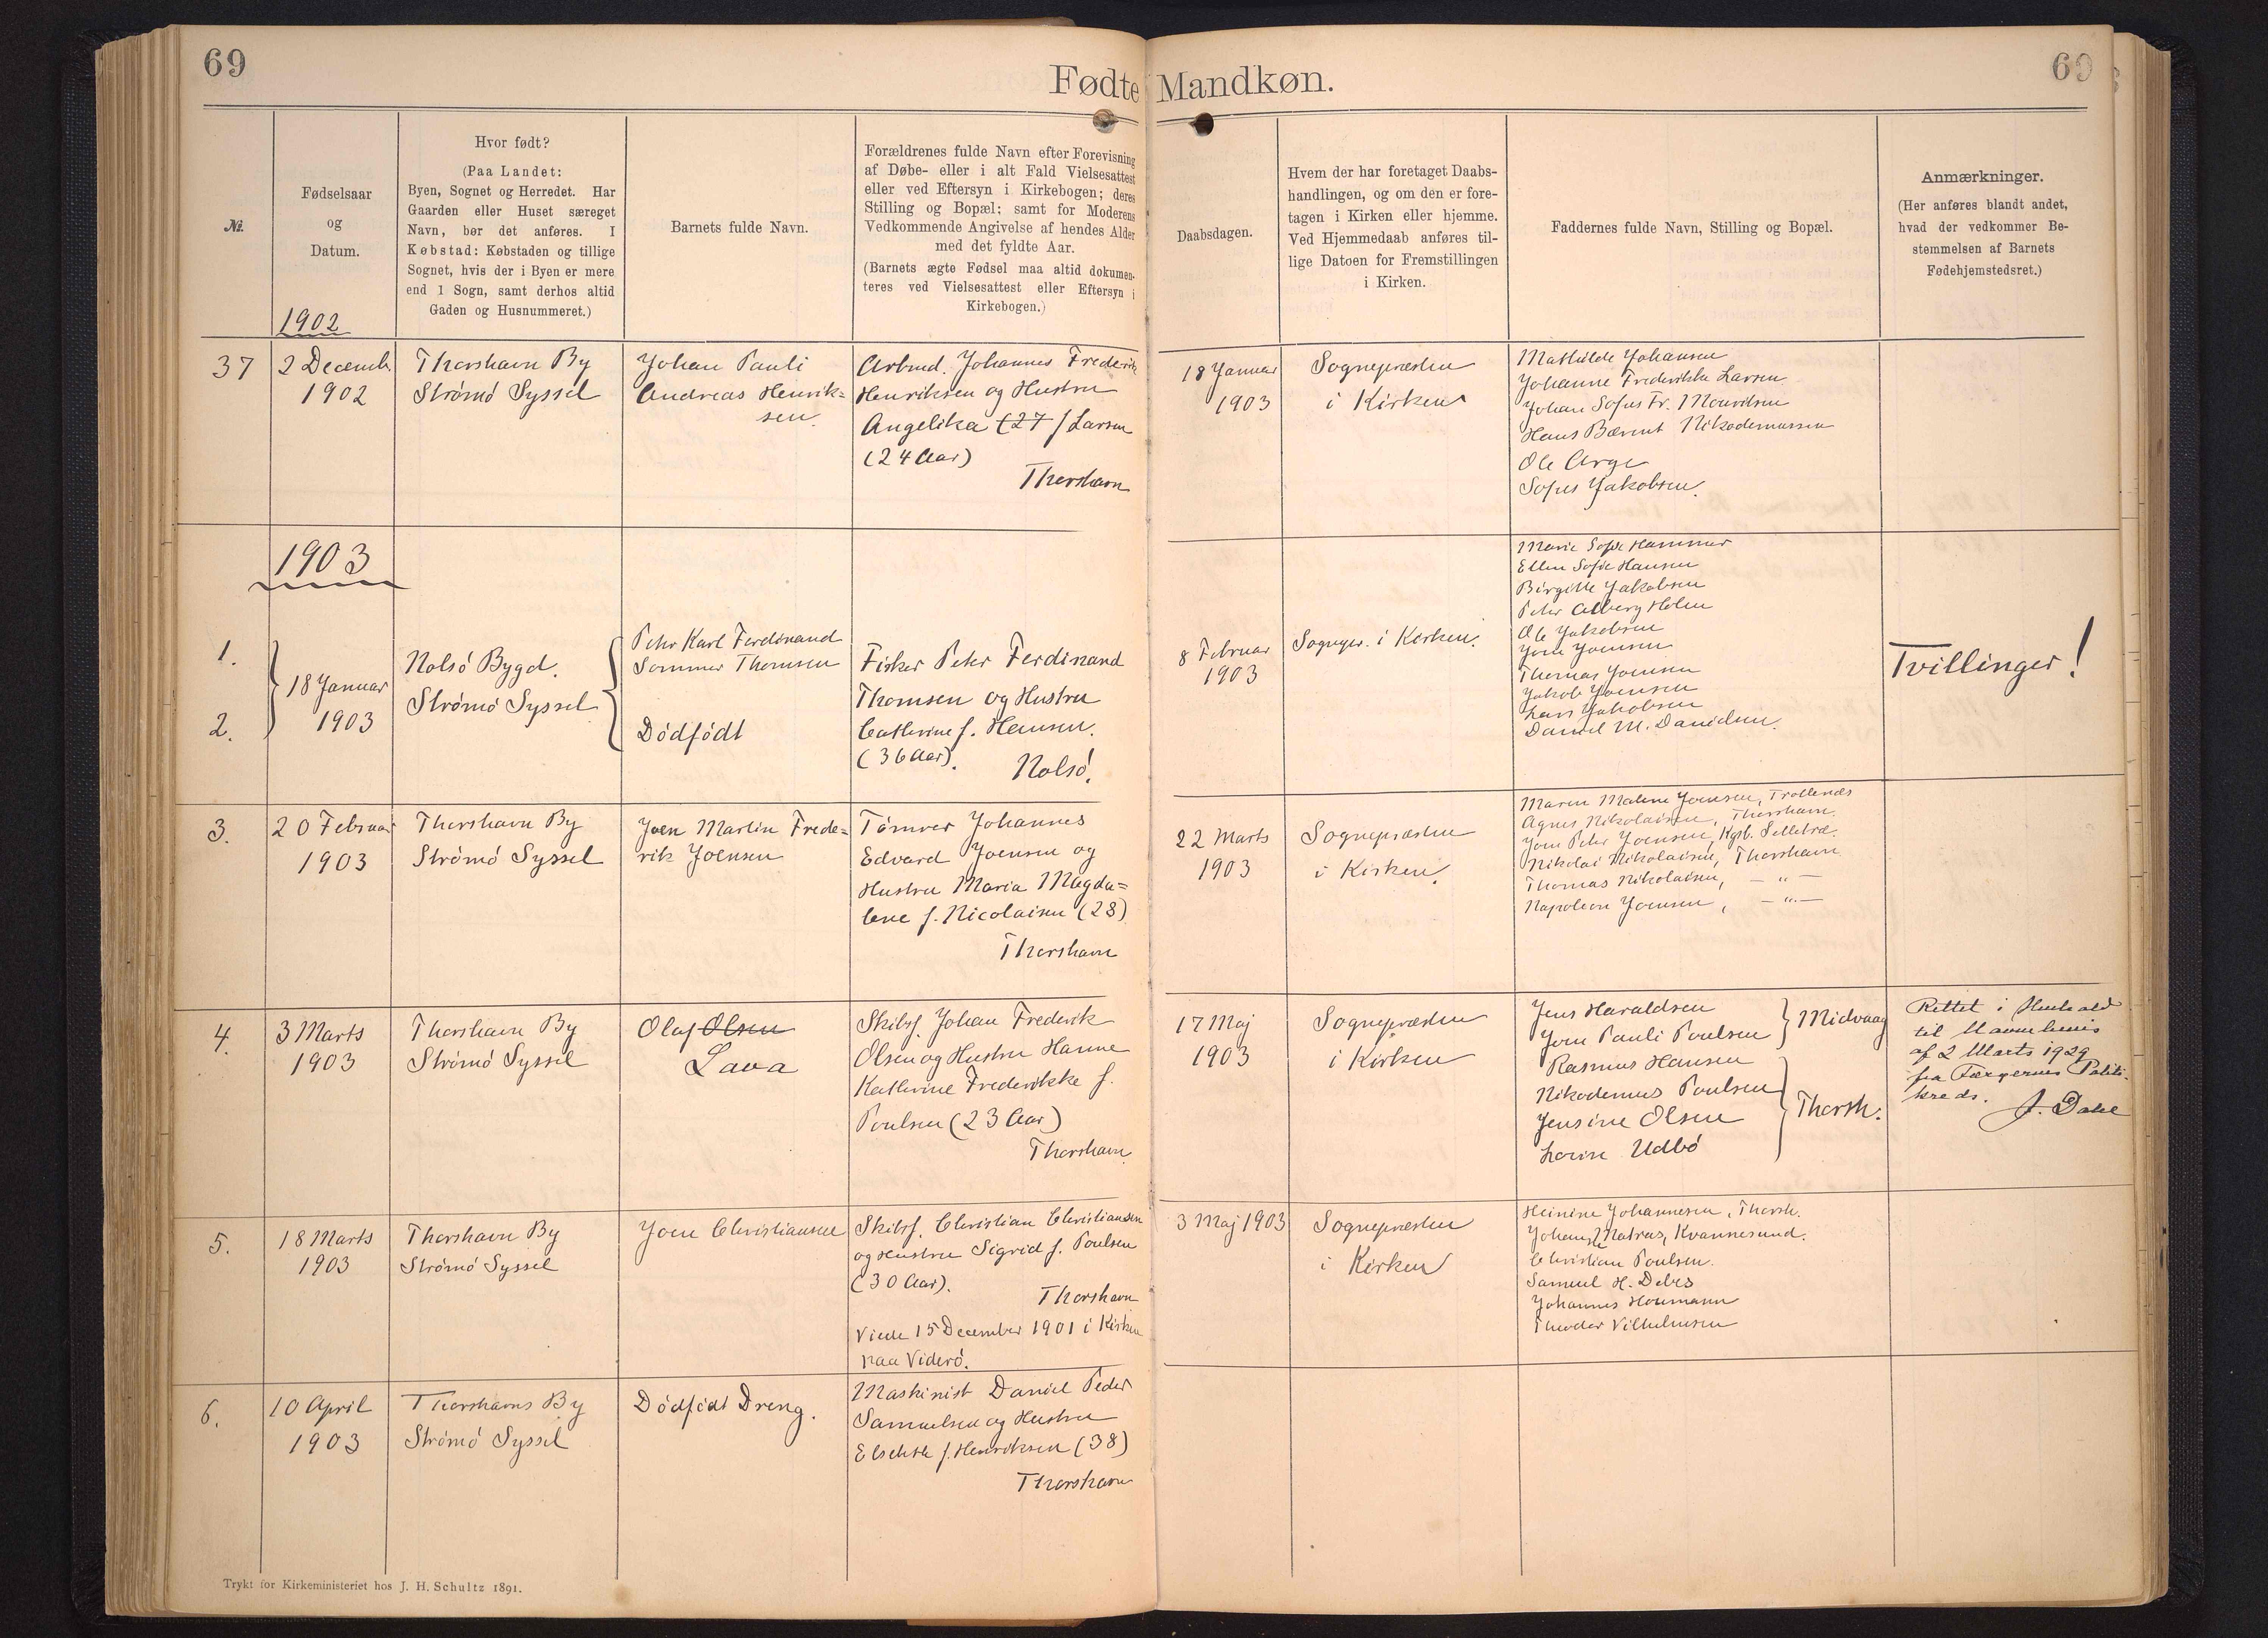 69
Fødte Mandkøn.
69
№
Fødselsaar
og
Datum.
1902
Hvor født?
(Paa Landet:
Byen, Sognet og Herredet. Har
Gaarden eller Huset særeget
Navn, bør det anføres. I
Købstad: Købstaden og tillige
Sognet, hvis der i Byen er mere
end 1 Sogn, samt derhos altid
Gaden og Husnummeret.)
Barnets fulde Navn.
Forældrenes fulde Navn efter Forevisning
af Døbe- eller i alt Fald Vielsesattest
eller ved Eftersyn i Kirkebogen; deres
Stilling og Bopæl; samt for Moderens
Vedkommende Angivelse af hendes Alder
med det fyldte Aar.
(Barnets ægte Fødsel maa altid dokumen-
teres ved Vielsesattest eller Eftersyn i
Kirkebogen.)
Daabsdagen.
Hvem der har foretaget Daabs-
handlingen, og om den er fore-
tagen i Kirken eller hjemme.
Ved Hjemmedaab anføres til-
lige Datoen for Fremstillingen
i Kirken.
Faddernes fulde Navn, Stilling og Bopæl.
Anmærkninger.
(Her anføres blandt andet,
hvad der vedkommer Be-
stemmelsen af Barnets
Fødehjemstedsret.)
37
2 Decemb.
1902
Thorshavn By
Strömö Syssel
Johan Pauli
Andreas Henrik=
sen.
Arbmd. Johannes Frederik
Henriksen og Hustru
Angelika (27 f Larsen
(24 Aar)
Thorshavn
18 Januar
1903
Sognepræsten
i Kirken
Mathilde Johansen
Johanne Frederikke Larsen
Johan Sofus Fr. Mouritsen
Hans Bærent Nikodemussen
Ole Arge
Sofus Jakobsen.
1903
1.
2.
18 Januar
1903
Nolsö Bygd.
Strömö Syssel
Peter Karl Ferdinand
Sommer Thomsen
Dödfödt
Fisker Peter Ferdinand
Thomsen og Hustru
Cathrine f. Hansen.
(36 Aar).
Nolsö.
8 Februar
1903
Sognepr. i Kirken.
Marie Sofie Hammer
Ellen Sofie Hansen
Birgitte Jakobsen
Peter Holm
Ole Jakobsen
Joen Joensen
Thomas Joensen
Jakob Joensen
Lars Jakobsen
Daniel M. Danielsen.
Tvillinger!
3.
20 Februar
1903
Thorshavn By
Strömö Syssel
Joen Martin Frede=
rik Joensen
Tömrer Johannes
Edvard Joensen og
Hustru Maria Magda=
lene f. Nicolaisen (28)
Thorshavn
22 Marts
1903
Sognepræsten
i Kirken.
Maren Malene Joensen, Trollenæs
Agnes Nikolaisen, Thorshavn.
Joen Peter Joensen, Kgsb. Selletræ.
Nikolai Nikolaisen, Thorshavn
Thomas Nikolaisen, — " —
Napoleon Joensen, — " —
4.
3 Marts
1903
Thorshavn By
Strömö Syssel
Olaf Olsen
Lava
Skibsf. Johan Frederik
Olsen og Hustru Hanne
Kathrine Frederikke f.
Poulsen (23 Aar)
Thorshavn
17 Maj
1903
Sognepræsten
i Kirken
Jens Haraldsen
Joen Pauli Poulsen
Midvaag
Rasmus Hansen
Nikodemus Poulsen
Jensine Olsen
Lovise Udbö
Thorsh.
Rettet i Henhold
til Navnebevis
af 2 Marts 1929
fra Færøernes Politi-
kreds.
J. Dahl
5.
18 Marts
1903
Thorshavn By
Strömö Syssel
Joen Christiansen
Skibsf. Christian Christiansen
og Hustru Sigrid f. Poulsen
(30 Aar).
Thorshavn
Viede 15 December 1901 i Kirken
paa Viderö.
3 Maj 1903
Sognepræsten
i Kirken
Heinine Johannesen, Thorsh.
Johanne Matras, Kvannesund.
Christian Poulsen.
Samuel H. Debes
Johannes Houmann
Theodor Vilhelmsen
6.
10 April
1903
Thorshavns By
Strömö Syssel
Dödfödt Dreng.
Maskinist Daniel Peder
Samuelsen og Hustru
Elsebeth f. Henriksen (38)
Thorshavn
Trykt for Kirkeministeriet hos J. H. Schultz 1891.